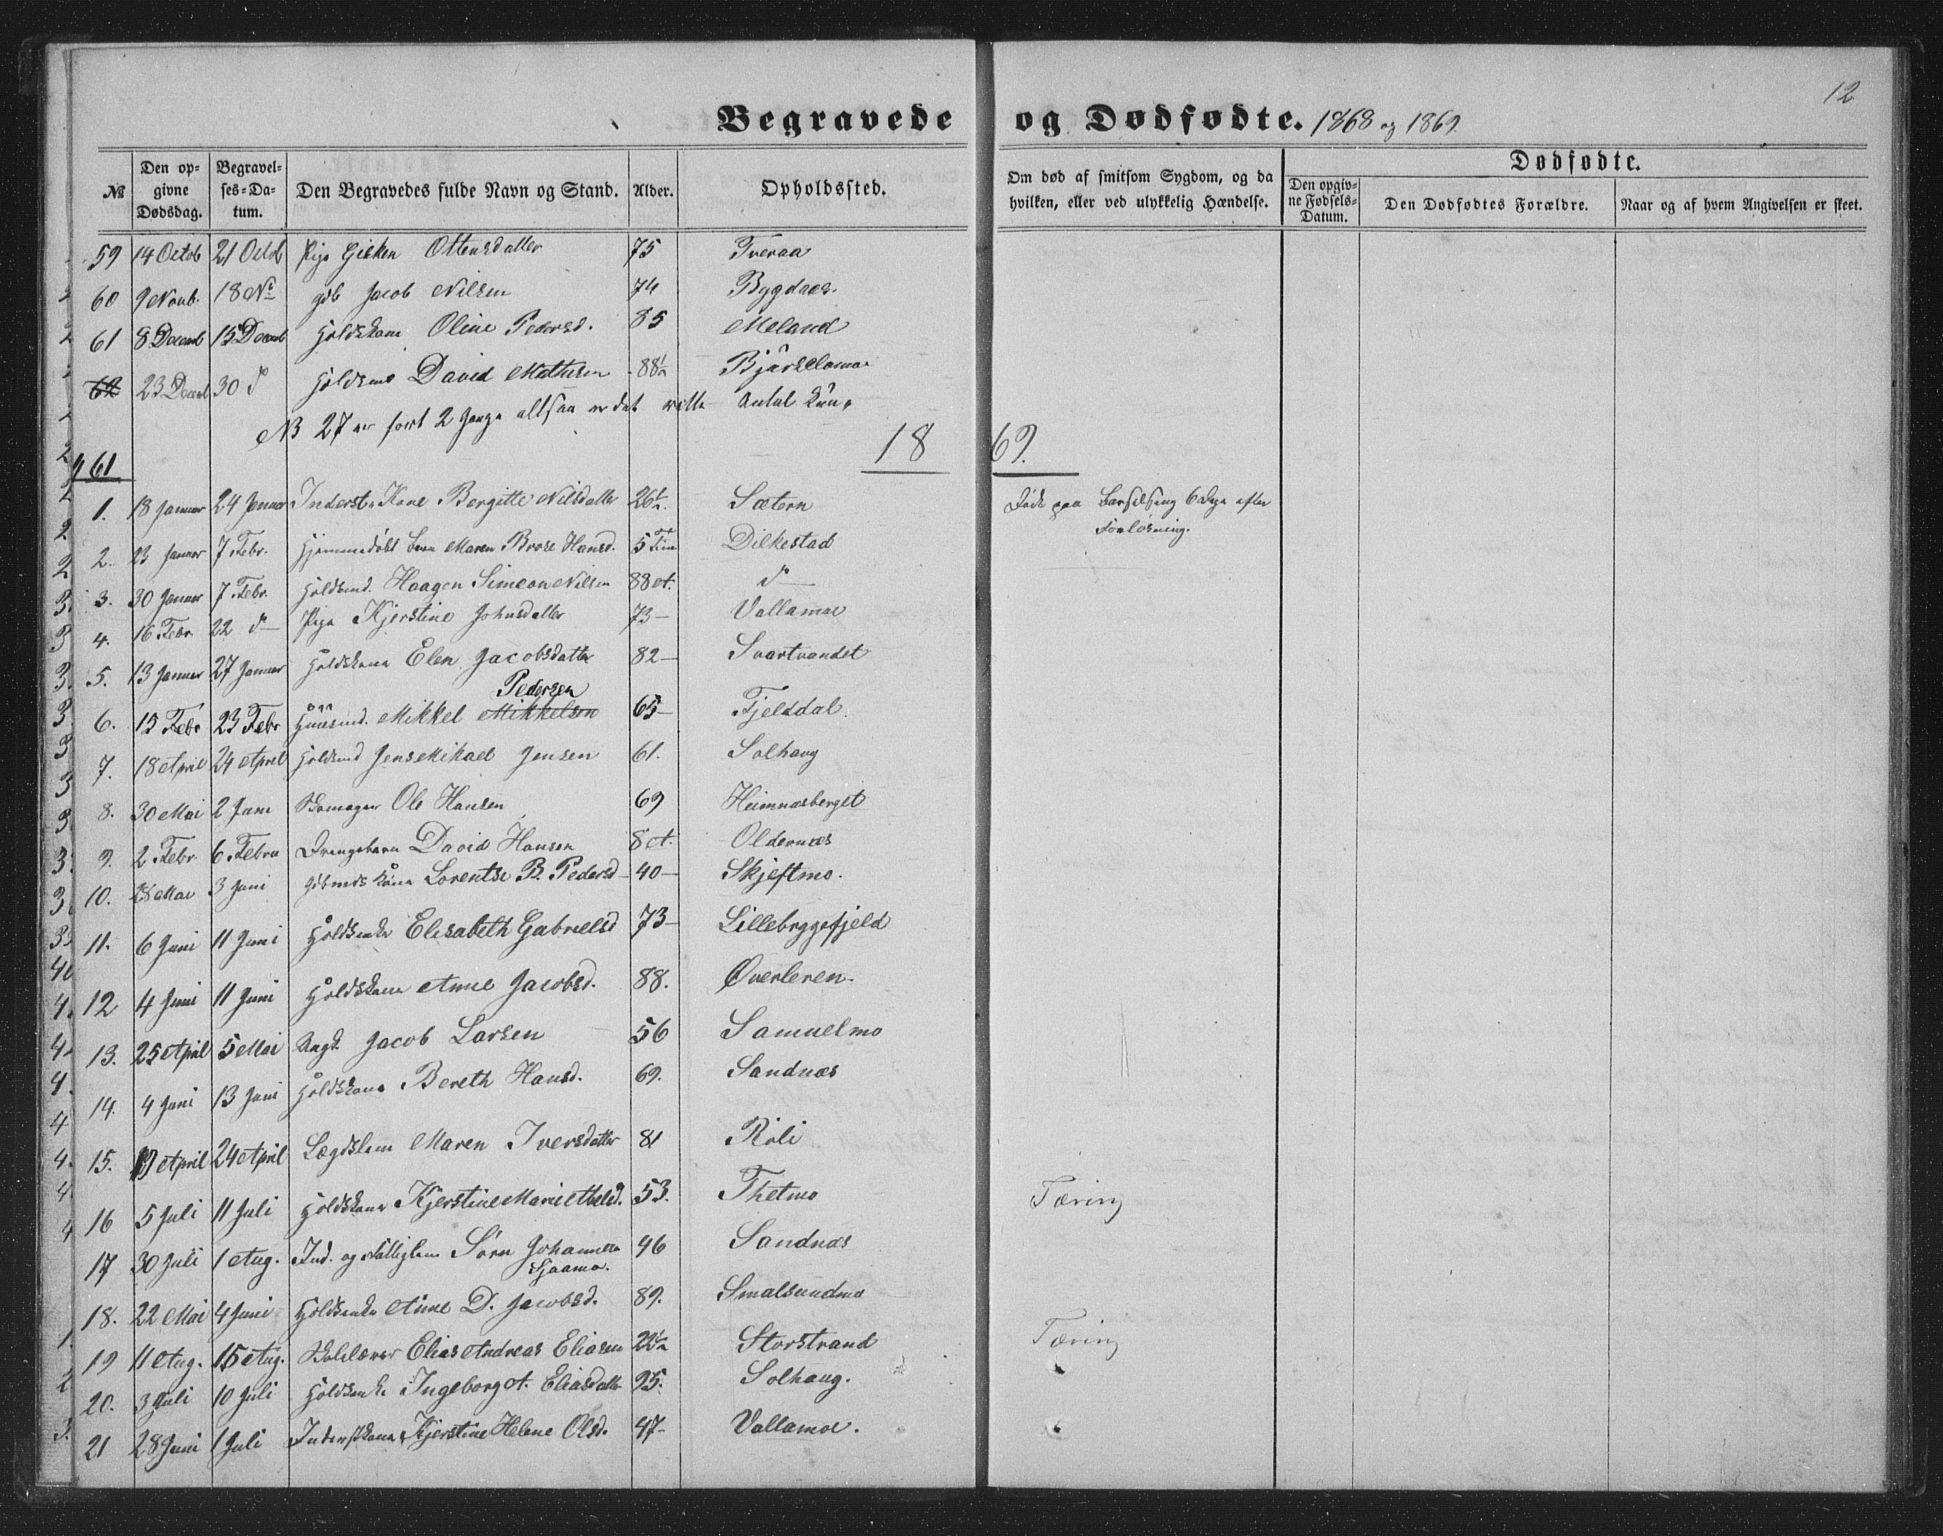 12
Begravede og Dødfødte. 1868 og 1869
№
Den opgivne Dødsdag.
Begravelses-Datum.
Den Begravedes fulde Navn og Stand.
Alder.
Opholdssted.
Om død af smitsom Sygdom, og da hvilken, eller ved ulykkelig Hændelse.
Dødfødte.
Den opgivne Fødsels-Datum.
Den Dødfødtes Forældre.
Naar og af hvem Angivelsen er skeet.
59 14 Octob 21 Octob Pige Ottensdatter 75 Tveraa
60 9 Novb. 18 N Jacob Nilsen 74 Bygdaas
61 8 Decemb 15 Decemb Oline Pedersd. 85 Meland
62 23 Decemb 30 d David Mathisen 88½
NB 27 er ført 2 Gange altsaa er det rette Antal kun
61
1869.
1. 18 Januar 24 Januar Inderst. Kone Bergitte Nilsdatter 26½ Sætern Døde paa Barselseng 6 Dage efter
Forløsning.
2. 23 Januar 7 Febr. Hjemmedøbt Barn Maren Hansd. 5 Tim Dilkestad
3. 30 Januar 7 Febr. Haagen Simeon Nilsen 88 A. d —
4. 16 Febr 22 d — Pige Kjerstine Johnsdatter 73 — Vallamoe
5. 13 Januar 27 Januar Elen Jacobsdatter 82 — Svartvandet
Pedersen
6. 15 Febr 23 Febr Huusmd. Mikkel Mikkelsen 65 — Fjelddal.
7. 18 April 24 April Jens Mikael Jensen 61. Solhaug
8. 30 Mai 2 Juni Ole Hansen 69 Heimnæsberget
9. 2 Febr. 6 Febru Drengebarn David Hansen 8 A. Oldernæs
10. 28 Mai 3 Juni Lorentse B. Pedersd — 40 — Skjeftmo.
11. 6 Juni 11 Juni Elisabeth Gabrielsd 73 — Lillebryggefjeld
12 4 Juni 11 Juni Anne Jacobsd. 88. Øverleren.
13. 25 April 5 Mai Ungk. Jacob Larsen 56 Samuelmo
14. 4 Juni 13 Juni Bereth Hansd. 69. Sandnæs
15. 19 April 24 April Lægdslem Maren Iversdatter 81 Röli
16 5 Juli 11 Juli Kjerstine Marie 53. Thetmo Tæring
17 30 Juli 1 Aug. Ind. og Fattiglem Sørn Johannesen 46 Sandnæs
Sjaamo.
18. 22 Mai 4 Juni Anne D. Jacobsd. 89. Smalsundmo
19 11 Aug. 15 Aug. Elias Andreas Eliasen 22½ Storstrand Tæring
20. 3 Juli 10 Juli Ingeborg A. Eliasdatter 95. Solhaug.
21 28 Juni 1 Juli Kjerstine Helene Olsd. 47 — Vallamoe.